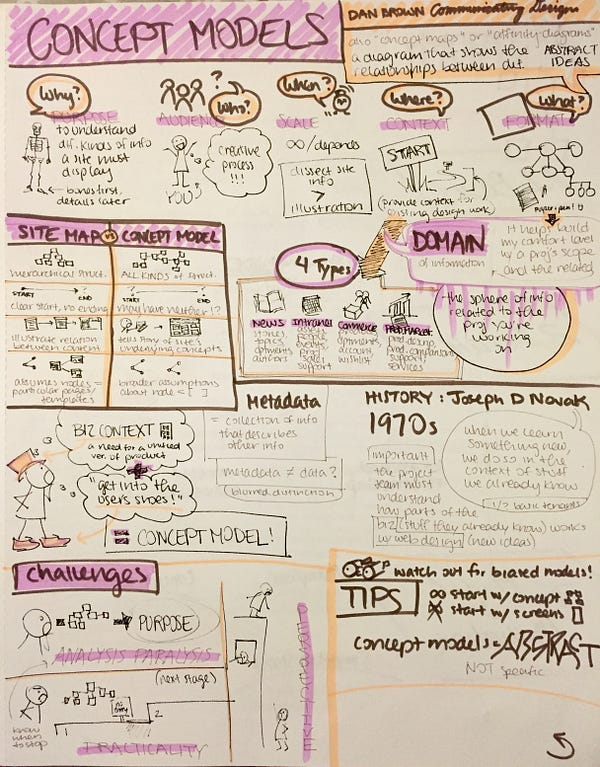 CONCEPT MODELS
DAN BROWN Communicating Design
also "concept maps" or "affinity diagrams"
a diagram that shows the
relationships between dif.
ABSTRACT
IDEAS
Why?
PURPOSE
to understand
dif. kinds of info
a site must
display
bones first,
details later
?
Who?
AUDIENCE
YOU
creative
process
!!!
When?
SCALE
∞/depends
dissect site
info
>
illustration
Where?
CONTEXT
START
(provide context for
existing design work)
What?
FORMAT
SITE MAP vs CONCEPT MODEL
hierarchical struct.
ALL KINDS of struct.
START END
START? END
clear start, no ending
may have neither!?
illustrate relation
between content
tells story of site's
underlying concepts
assumes nodes =
particular pages/
templates
broader assumptions
about node = [ ]
DOMAIN
of information
it helps build
my comfort level
w/ a proj's scope
and the related
the sphere of info
related to the
proj you're
working
on
4 Types
News
stories
topics
authors
Intranet
people
events
prod
sales
support
Commerce
account
wishlist
prod. comparisons
support/
services
BIZ CONTEXT
a need for a unified
ver. of product
+
"get into the
users shoes!"
= CONCEPT MODEL!
Metadata
= collection of info
that describes
other info
metadata ≠ data?
(blurred distinction)
HISTORY: Joseph D Novak
1970s
important
the project
team must
understand
how parts of the
biz (stuff they already know) works
w/ web design (new ideas)
when we learn
something new,
we do so in the
context of stuff
we already know
1/2 basic tenets
challenges
PURPOSE
ANALYSIS PARALYSIS
(next stage)
know
when
to stop
PRACTICALITY
watch out for biased models!
TIPS
start w/ concept
start w/ screens
concept models = ABSTRACT
NOT specific